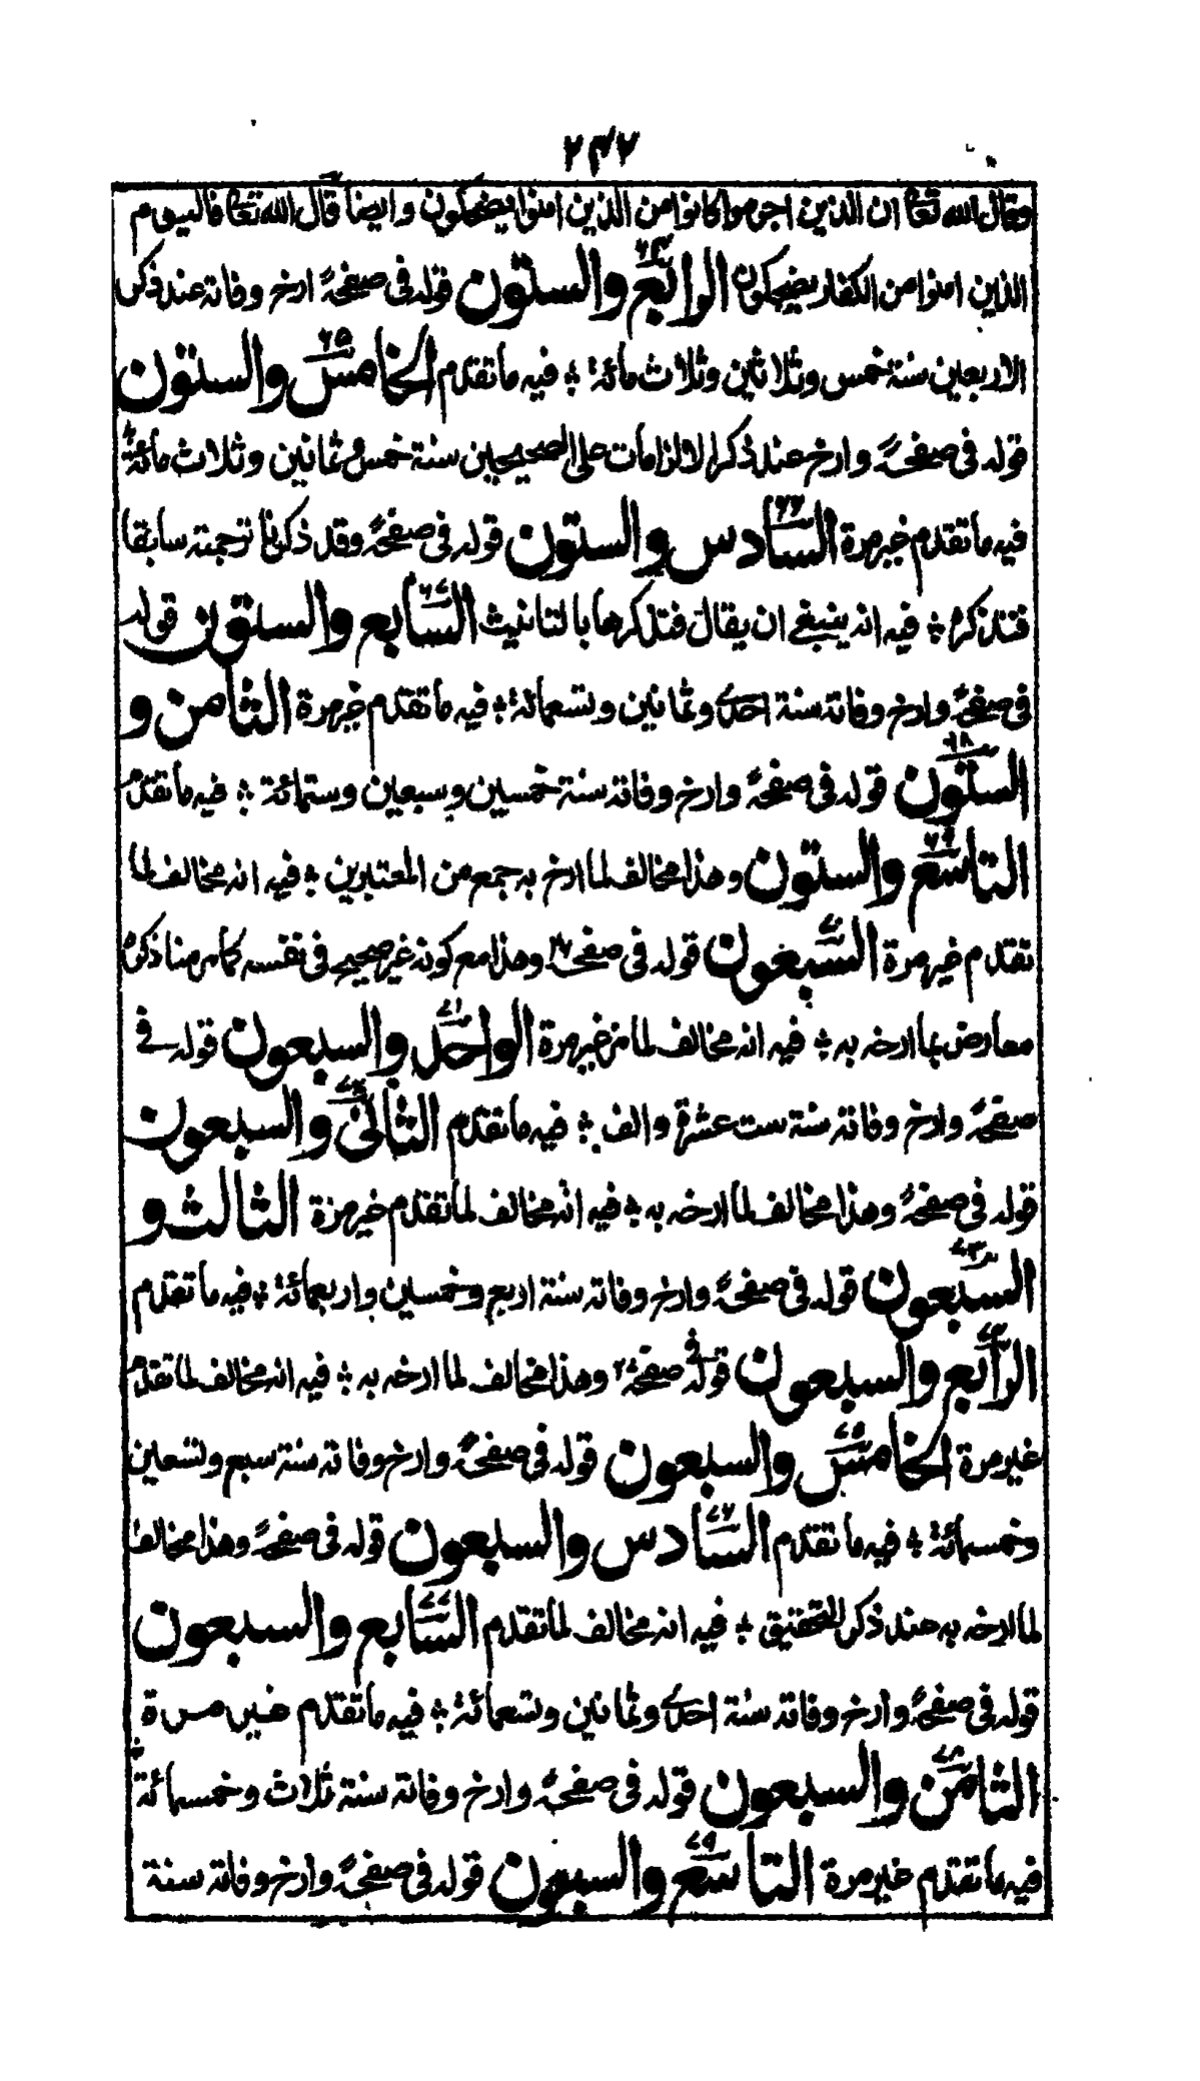 ٢٤٢
وقال الله تعالى ان الذين اجرموا كانوا من الذين امنوا يضحكون وايضا قال الله تعالى فاليوم
الذين امنوا من الكفار يضحكون الرابع والستون ٦٤ قوله فى صفحة ارخ وفاته عند ذكر
الاربعين سنة خمس وثلاثين وثلاث مائة ؛ فيه ما تقدم الخامس والستون ٦٥
قوله فى صفحة وارخ عند ذكر الالزامات على الصحيحين سنة خمس وثمانين وثلاث مائة
فيه ما تقدم غير مرة السادس والستون ٦٦ قوله فى صفحة وقد ذكرنا ترجمته سابقا
فتذكره ؛ فيه انه ينبغي ان يقال فتذكرها بالتانيث السابع والستون ٦٧ قوله
فى صفحة وارخ وفاته سنة احدى وثمانين وتسعمائة ؛ فيه ما تقدم غير مرة الثامن و
الستون ٦٨ قوله فى صفحة وارخ وفاته سنة خمسين وسبعين وستمائة ؛ فيه ما تقدم
التاسع والستون ٦٩ وهذا مخالف لما ارخ به جمع من المعتبرين ؛ فيه انه مخالف لما
تقدم غير مرة السبعون ٧٠ قوله فى صفحة وهذا مع كونه غير صحيح فى نفسه كما مر منا ذكره
معارض بما ارخه به ؛ فيه انه مخالف لما مر غير مرة الواحد والسبعون ٧١ قوله فى
صفحة وارخ وفاته سنة ست عشرة والف ؛ فيه ما تقدم الثانى والسبعون ٧٢
قوله فى صفحة وهذا مخالف لما ارخه به ؛ فيه انه مخالف لما تقدم غير مرة الثالث و
السبعون ٧٣ قوله فى صفحة وارخ وفاته سنة اربع وخمسين واربعمائة ؛ فيه ما تقدم
الرابع والسبعون ٧٤ قوله فى صفحة وهذا مخالف لما ارخه به ؛ فيه انه مخالف لما تقدم
غير مرة الخامس والسبعون ٧٥ قوله فى صفحة وارخ وفاته سنة سبع وتسعين
وخمسمائة ؛ فيه ما تقدم السادس والسبعون ٧٦ قوله فى صفحة وهذا مخالف
لما ارخه به عند ذكر التحقيق ؛ فيه انه مخالف لما تقدم السابع والسبعون ٧٧
قوله فى صفحة وارخ وفاته سنة احدى وثمانين وتسعمائة ؛ فيه ما تقدم غير مرة
الثامن والسبعون ٧٨ قوله فى صفحة وارخ وفاته سنة ثلاث وخمسمائة ؛
فيه ما تقدم غير مرة التاسع والسبعون ٧٩ قوله فى صفحة وارخ وفاته سنة